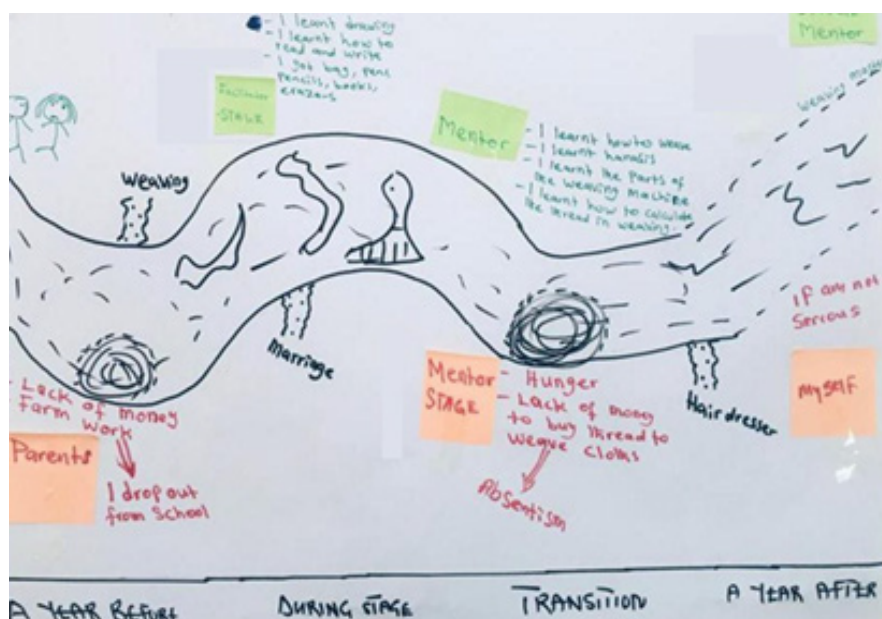 - I learnt drawing
- I learnt how to
read and write
- I got bag, pens
pencils, books,
erazors
Facilitator
STAGE
Mentor
- I learnt how to weave
- I learnt
- I learnt the parts of
the weaving machine
- I learnt how to calculate
the thread in weaving.
Mentor
Weaving
Weaving
Marriage
Hairdresser
If am not
Serious
myself
- Lack of money
Farm Work
Parents
I drop out
from School
Mentor
STAGE
- Hunger
- Lack of money
to buy thread to
weave cloths
Absentism
A YEAR BEFORE
DURING STAGE
TRANSITION
A YEAR AFTER